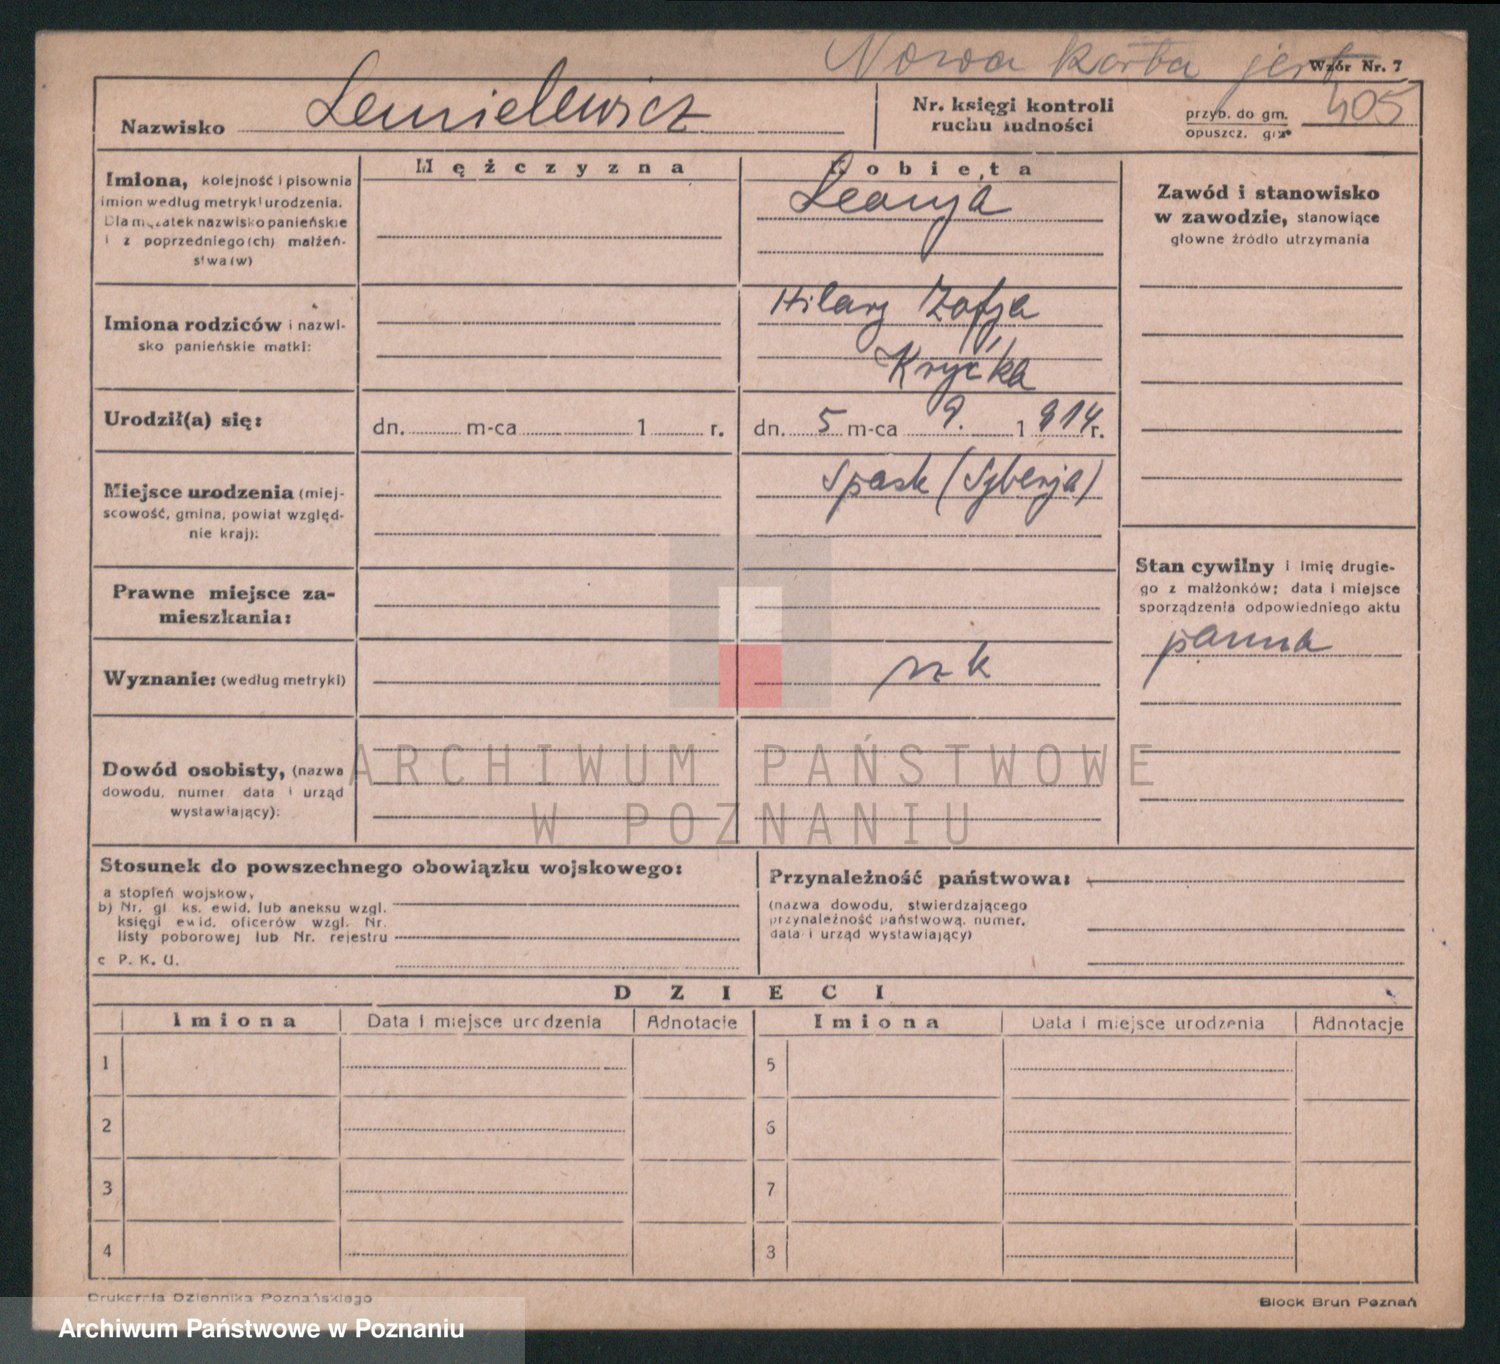 Nowa karta jest
Wzór Nr. 7
Nazwisko Lemielewicz
Nr. księgi kontroli
ruchu ludności
przyb. do gm. 405
opuszcz. gm.
Mężczyzna
Kobieta
Imiona, kolejność i pisownia
imion według metryki urodzenia.
Dla mężatek nazwisko panieńskie
i z poprzedniego(ch) małżeń-
stwa(w)
Leonja
Zawód i stanowisko
w zawodzie, stanowiące
główne źródło utrzymania
Imiona rodziców i nazwi-
sko panieńskie matki:
Hilary Zofja
Urodził(a) się:
dn. m-ca 1 r.
dn. 5 m-ca 9. 1914 r.
Miejsce urodzenia (miej-
scowość, gmina, powiat względ-
nie kraj):
Spask (Syberja)
Prawne miejsce za-
mieszkania:
Stan cywilny i imię drugie-
go z małżonków; data i miejsce
sporządzenia odpowiedniego aktu
panna
Wyznanie: (według metryki)
rz k
Dowód osobisty, (nazwa
dowodu, numer data i urząd
wystawiający):
ARCHIWUM PAŃSTWOWE
W POZNANIU
Stosunek do powszechnego obowiązku wojskowego:
a stopień wojskow,
b) Nr. gł. ks. ewid. lub aneksu wzgl.
księgi ewid. oficerów wzgl. Nr.
listy poborowej lub Nr. rejestru
c P. K. U.
Przynależność państwowa:
(nazwa dowodu, stwierdzającego
przynależność państwową, numer,
data i urząd wystawiający)
DZIECI
Imiona Data i miejsce urodzenia Adnotacje Imiona Data i miejsce urodzenia Adnotacje
1 5
2 6
3 7
4 8
Drukarnia Dziennika Poznańskiego
Block Brun Poznań
Archiwum Państwowe w Poznaniu